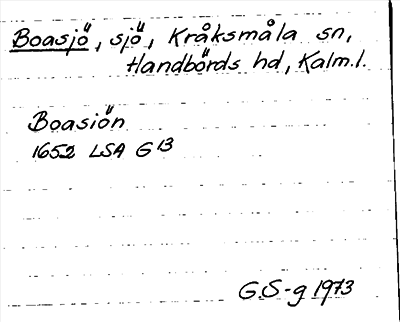 Boasjö, sjö, Kråksmåla sn,
Handbörds hd, Kalm.l.
Boasiön
1652 LSA G 13
G.S-g 1973